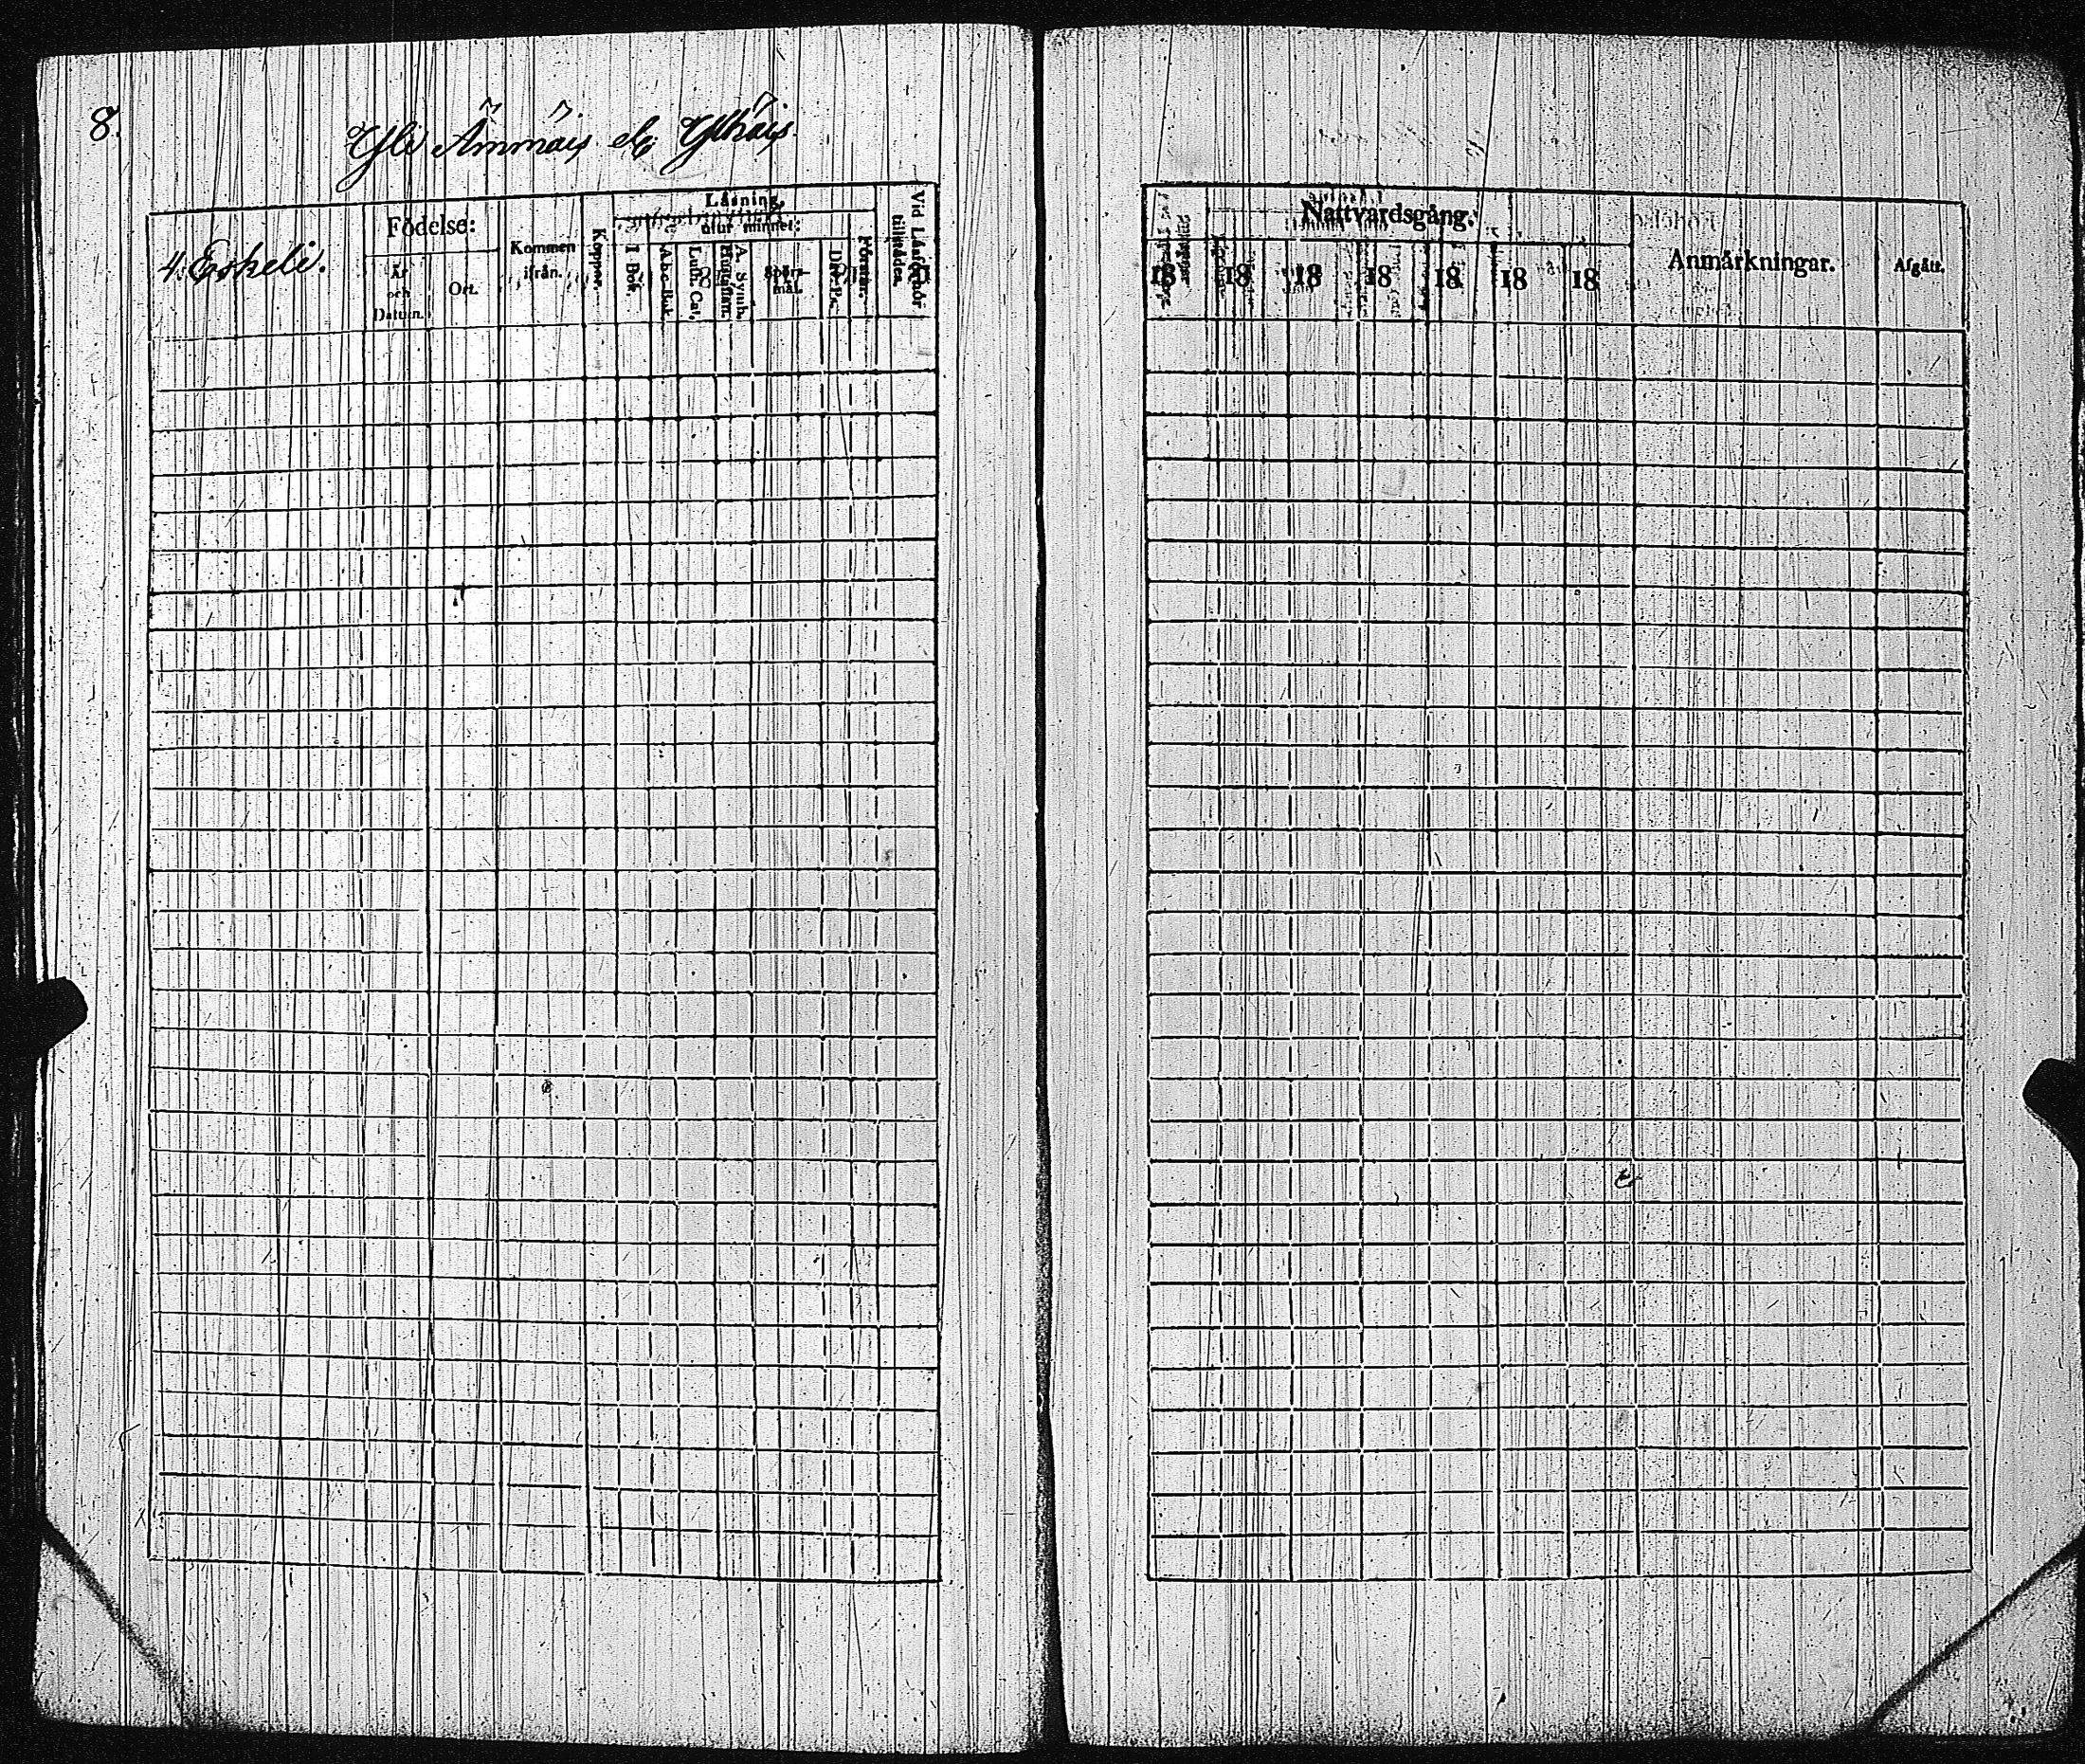 8.
Yli Ämmäis el. Ylhäis
4. Eskeli.
Födelse:
År och Datum.
Ort.
Kommen ifrån.
Koppor.
Läsning,
I Bok.
utur minnet:
Abc-Bok
Luth. Cat.
Hustaflan.
A. Symb.
Spörsmål.
Dav. Ps.
Förstår.
Vid Läsförhör tillstädes.
Nattvardsgång.
18 18 18 18 18 18 18
Anmärkningar.
Afgått.